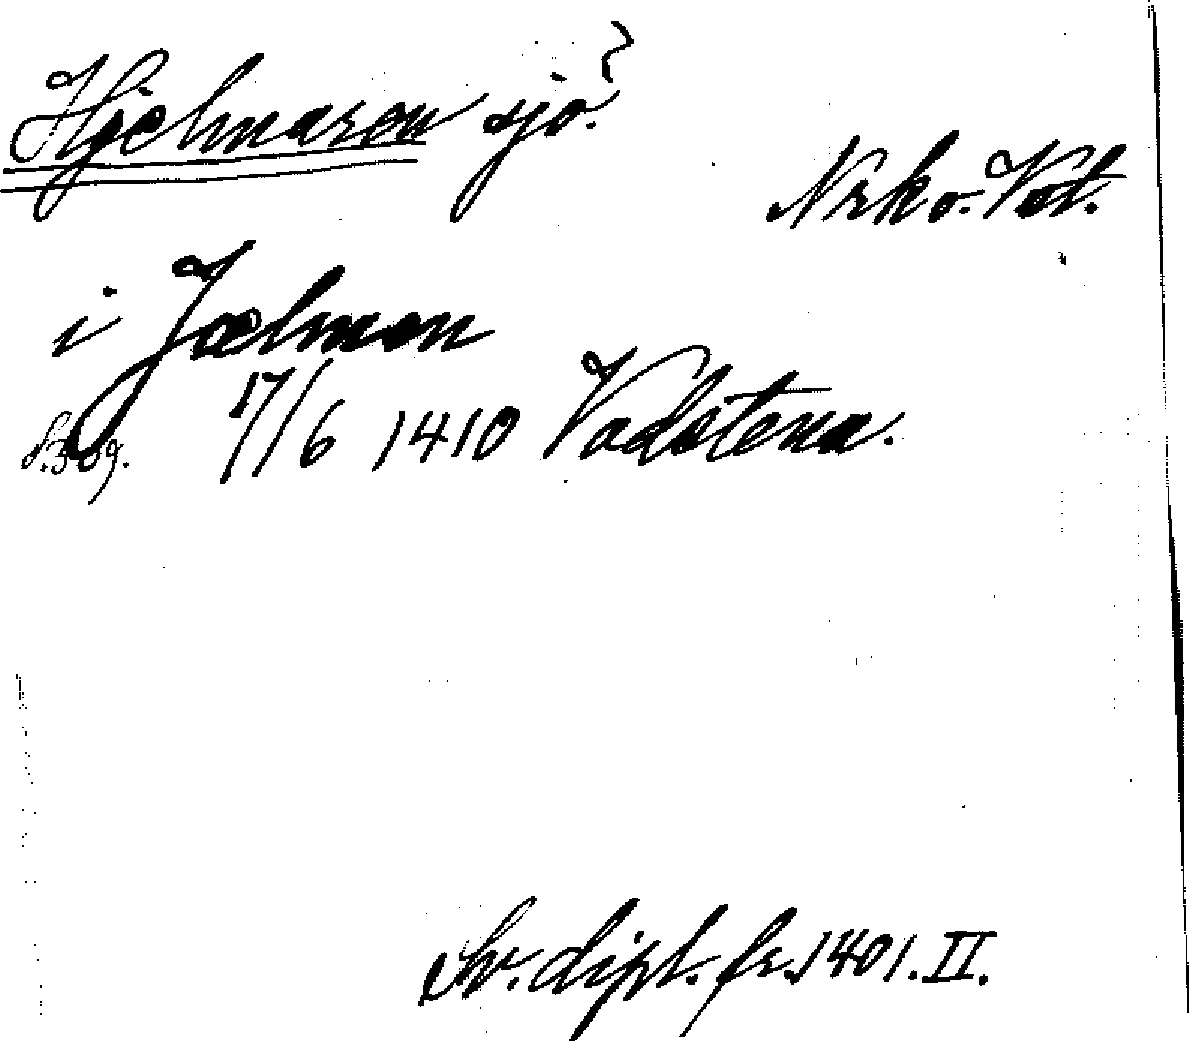 Hjelmaren sjö?
Nrk o. Vstl.
i Jælmen
S. 309. 17/6 1410 Vadstena.
Sv. dipl. fr. 1401. II.